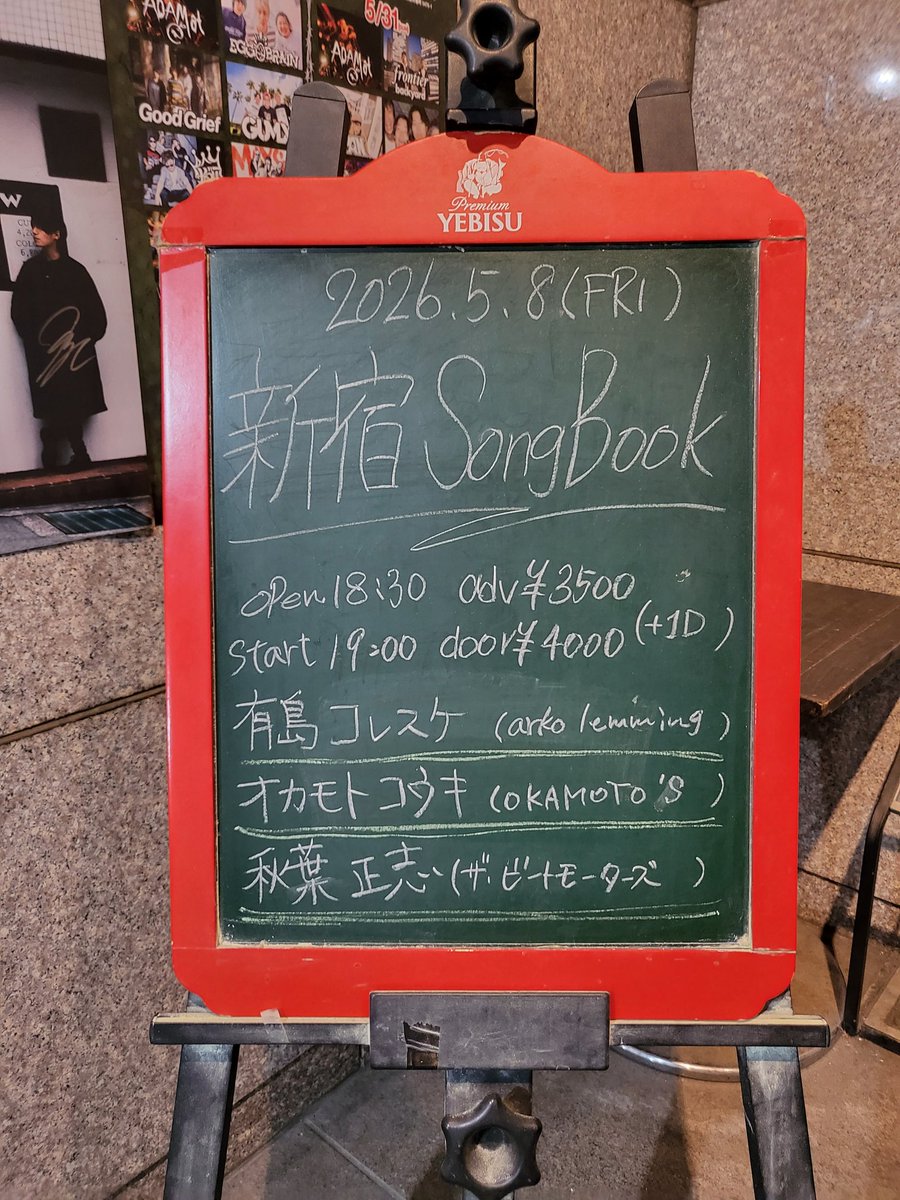 ADAMat
EGGBRAIN
5/31
ADAMat
Frontier backyard
Good Grief
GUMX
W
Premium
YEBISU
2026.5.8(FRI)
新宿 SongBook
open 18:30 adv¥3500
start 19:00 door¥4000 (+1D)
有島コレスケ (arko lemming)
オカモトコウキ (OKAMOTO'S)
秋葉 正志 (ザ・ビートモーターズ)